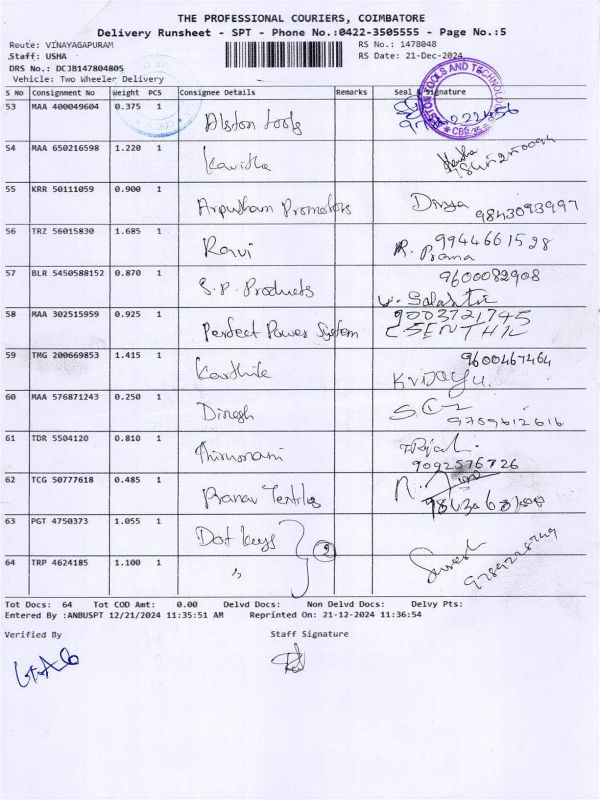 THE PROFESSIONAL COURIERS, COIMBATORE
Delivery Runsheet - SPT - Phone No.:0422-3505555 - Page No.:5
Route: VINAYAGAPURAM RS No.: 1478048
Staff: USHA RS Date: 21-Dec-2024
DRS No.: DCJB147804805
Vehicle: Two Wheeler Delivery
S No Consignment No Weight PCS Consignee Details Remarks Seal & Signature
53 MAA 400049604 0.375 1 Alston tools
54 MAA 650216598 1.220 1 Kavitha
55 KRR 50111059 0.900 1 Arputham Promoters Divya 9843093997
56 TRZ 56015830 1.685 1 Ravi R. Prama 9944661528
57 BLR 5450588152 0.870 1 S.P. Products 9600082908
58 MAA 302515959 0.925 1 Perfect Power System 9003721745 SENTHIL
59 TMG 200669853 1.415 1 Karthik 9600467464 K VIJAYU.
60 MAA 576871243 0.250 1 Dinesh 9789612616
61 TDR 5504120 0.810 1 9092576726
62 TCG 50777618 0.485 1 Pranav Textiles
63 PGT 4750373 1.055 1 Dot keys 2 Suresh 9789228749
64 TRP 4624185 1.100 1 "
Tot Docs: 64 Tot COD Amt: 0.00 Delvd Docs: Non Delvd Docs: Delvy Pts:
Entered By :ANBUSPT 12/21/2024 11:35:51 AM Reprinted On: 21-12-2024 11:36:54
Verified By Staff Signature